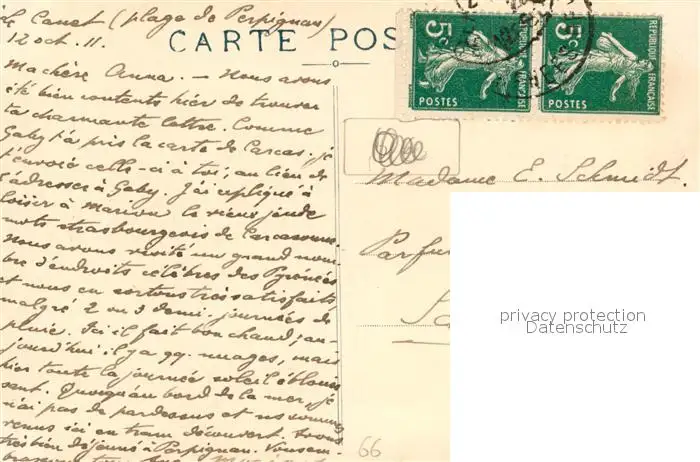 Le Canet (plage de Perpignan)
12 oct. 11.
CARTE POS
5c 5c
REPUBLIQUE FRANÇAISE
POSTES POSTES
Ma chère Anna. — Nous avons
été bien contents hier de trouver
ta charmante lettre. Comme
Gaby t'a pris la carte de Carcas. je
t'envoie celle-ci à toi, au lieu de
l'adresser à Gaby. J'ai expliqué à
loisir à Marion le vieux jeu de
mots strasbourgeois de Carcassonne
Nous avons visité un grand nom-
bre d'endroits célèbres des Pyrénées
et nous en sortons très satisfaits
malgré 2 ou 3 demi-journées de
pluie. Ici il fait bon chaud, au-
jourd'hui il y a qq. nuages, mais
hier toute la journée soleil éblouis
sant. Quoiqu'au bord de la mer, je
n'ai pas de pardessus et ns sommes
venus ici en tram découvert. Avons
très bien déjeuné à Perpignan. Vous em-
brassons
Madame E. Schmidt.
Parfu
66
privacy protection
Datenschutz